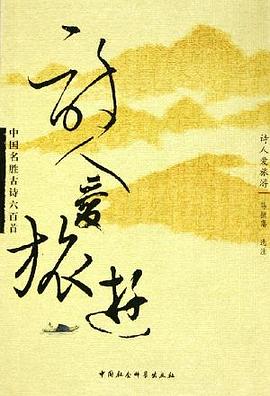 诗人爱旅遊
中国名胜古诗六百首
诗人爱旅游
选注
中国社会科学出版社